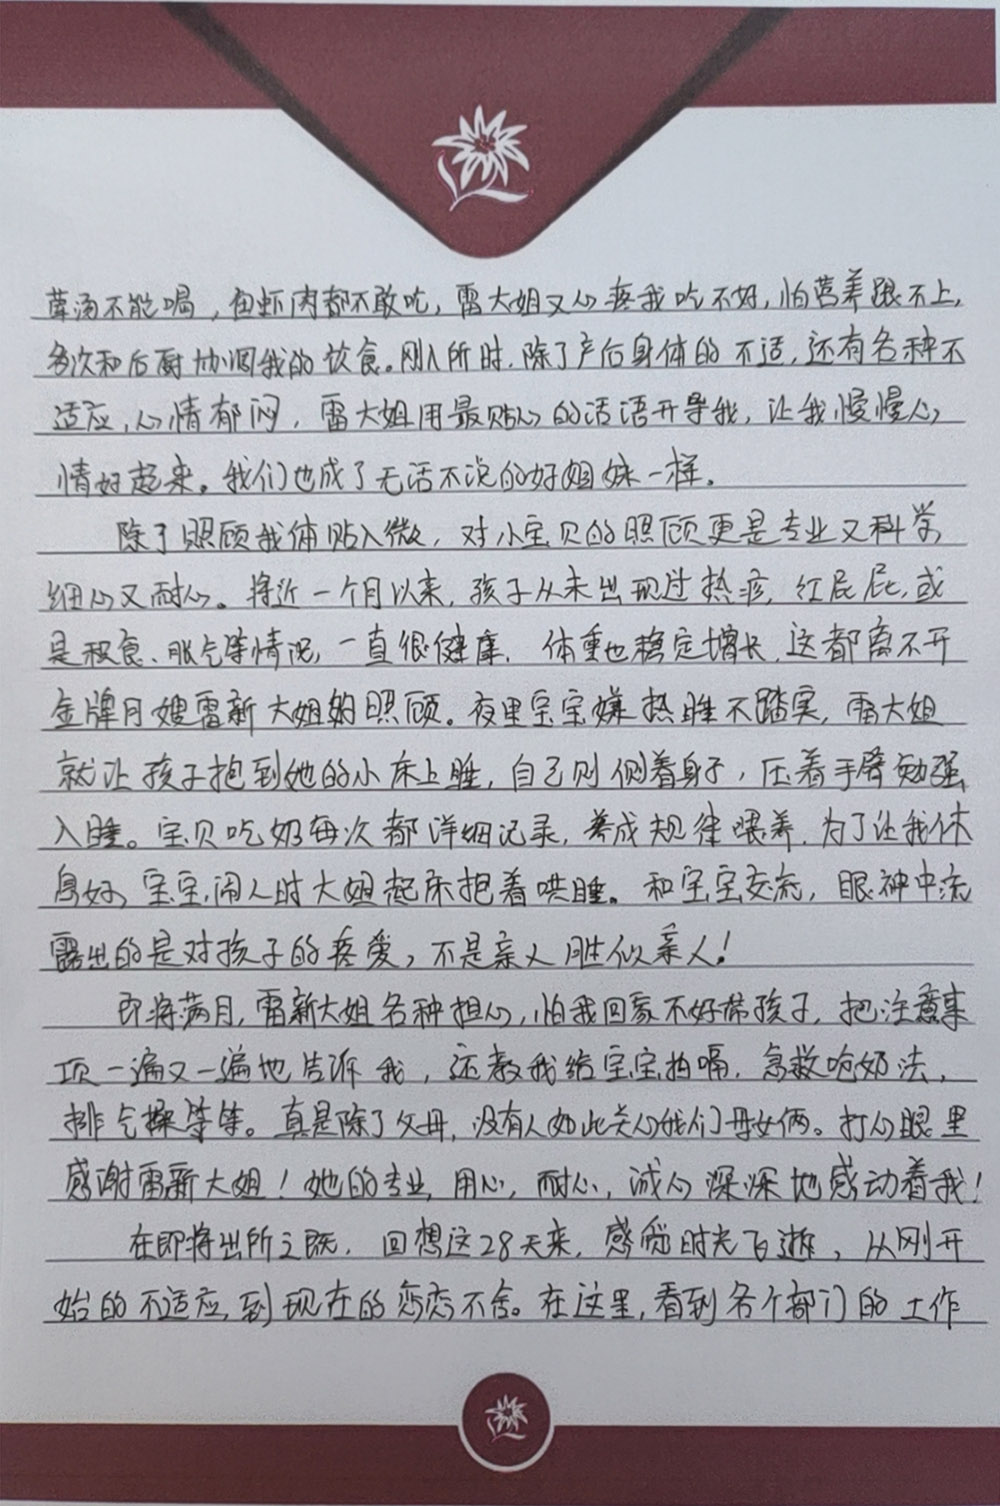 荤汤不能喝，鱼虾肉都不敢吃，雷大姐又心疼我吃不好，怕营养跟不上，
多次和后厨协调我的饮食。刚入所时，除了产后身体的不适，还有各种不
适应，心情郁闷，雷大姐用最贴心的话语开导我，让我慢慢心
情好起来。我们也成了无话不说的好姐妹一样。
除了照顾我体贴入微，对小宝贝的照顾更是专业又科学
细心又耐心。将近一个月以来，孩子从未出现过热疹，红屁屁，或
是积食、胀气等情况，一直很健康，体重也稳定增长，这都离不开
金牌月嫂雷新大姐的照顾。夜里宝宝嫌热睡不踏实，雷大姐
就让孩子抱到她的小床上睡，自己则侧着身子，压着手臂勉强
入睡。宝贝吃奶每次都详细记录，养成规律喂养，为了让我休
息好，宝宝闹人时大姐起床抱着哄睡。和宝宝交流，眼神中流
露出的是对孩子的疼爱，不是亲人胜似亲人！
即将满月，雷新大姐各种担心，怕我回家不好带孩子，把注意事
项一遍又一遍地告诉我，还教我给宝宝拍嗝，急救呛奶法，
排气操等等。真是除了父母，没有人如此关心我们母女俩。打心眼里
感谢雷新大姐！她的专业，用心，耐心，诚心深深地感动着我！
在即将出所之既，回想这28天来，感觉时光飞逝，从刚开
始的不适应，到现在的恋恋不舍。在这里，看到各个部门的工作